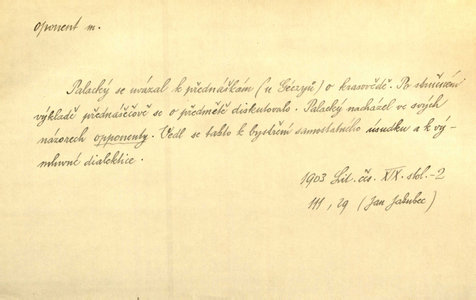 oponent m.
Palacký se uvázal k přednáškám (u Géczyů) o krasovědě. Po stručném
výkladě přednášečově se o předmětě diskutovalo. Palacký nacházel ve svých
názorech opponenty. Vedl se takto k bystření samostatného úsudku a k vý-
mluvné dialektice.
1903 Lit. čes. XIX. stol.-2
111, 29 (Jan Jakubec)